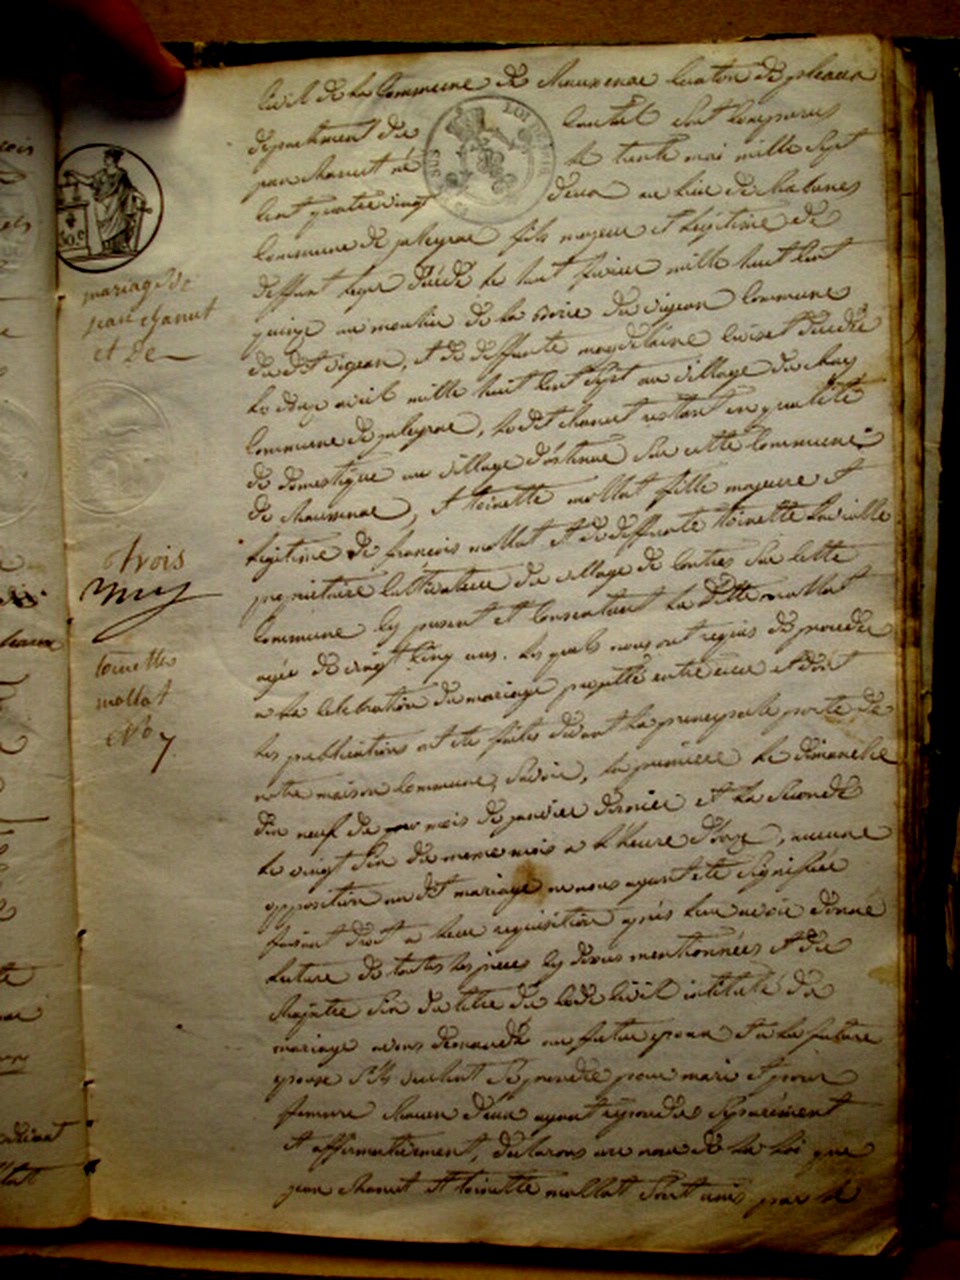 Civil de la Commune de Chaussenac Canton de pleaux
département du Cantal sont Comparus
jean chanut né le trente mai mille sept
Cent quatre vingt deux au lieu de
Commune de jaleyrac fils majeur et légitime de
deffunt leger décédé le huit fevrier mille huit Cent
quinze au moulin de la Borie du vigean Commune
du dit vigean, et de deffunte magdelaine décédée
le onze avril mille huit Cent sept au village du
Commune de jaleyrac, le dit chanut restant en qualité
de domestique au village d'ostenac sur cette Commune
de Chaussenac, et toinette mollat fille majeure et
legitime de françois mollat et de deffunte toinette
propriétaire Cultivateur du village de Contres sur cette
Commune icy present et Consentant la ditte mollat
agée de vingt Cinq ans. les quels nous ont requis de proceder
a la Celebration du mariage projetté entre eux et dont
les publications ont été faites devant la principale porte de
notre maison Commune, savoir, la première le dimanche
dix neuf du mois de janvier dernier et la seconde
le vingt six du meme mois a l'heure d'onze, aucune
opposition au dit mariage ne nous ayant été signifiée
faisant droit a leur requisition après leur avoir donné
lecture de toutes les pieces cy dessus mentionnées et du
Chapitre six du titre du Code Civil intitulé du
mariage avons demandé au futur epoux et a la future
epouse s'ils veulent se prendre pour mari et pour
femme chacun d'eux ayant repondu séparément
et affirmativement, declarons au nom de la loi que
jean chanut et toinette mollat sont unis par le
mariage de
jean chanut
et de
trois
toinette
mollat
No 7
LOI DE